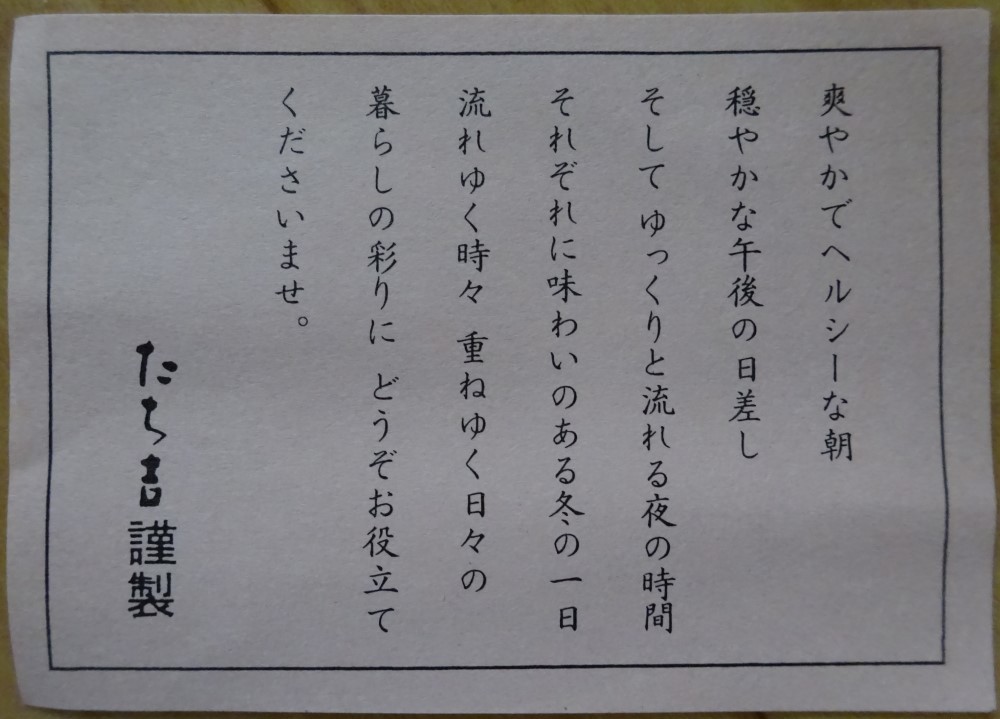 爽やかでヘルシーな朝
穏やかな午後の日差し
そして ゆっくりと流れる夜の時間
それぞれに味わいのある冬の一日
流れゆく時々 重ねゆく日々の
暮らしの彩りに どうぞお役立て
くださいませ。
たち吉謹製